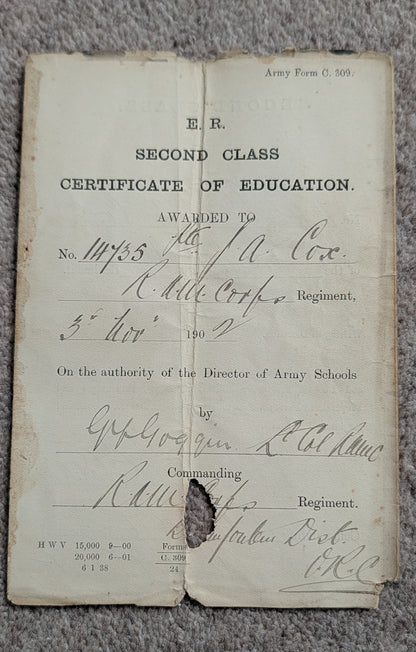 Army Form C. 309.
E. R.
SECOND CLASS
CERTIFICATE OF EDUCATION.
AWARDED TO
No. 14735 Pte J A. Cox.
R. A. M. Corps Regiment,
3rd Nov. 1902
On the authority of the Director of Army Schools
by
Lt Col RAMC
Commanding
R A M Corps Regiment.
Dist.
O. R. C
H W V 15,000 9—00 Forms
20,000 6—01 C. 309
6 1 38 24